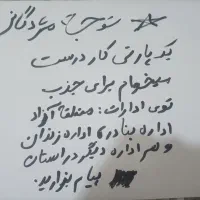 ☆ توجه مژدگانی
یک پارتی کار درست
میخوام برای جذب
توی ادارات: منطقه آزاد
اداره بنادر، اداره زندان
و هر اداره دیگر در استان
پیام بزارید